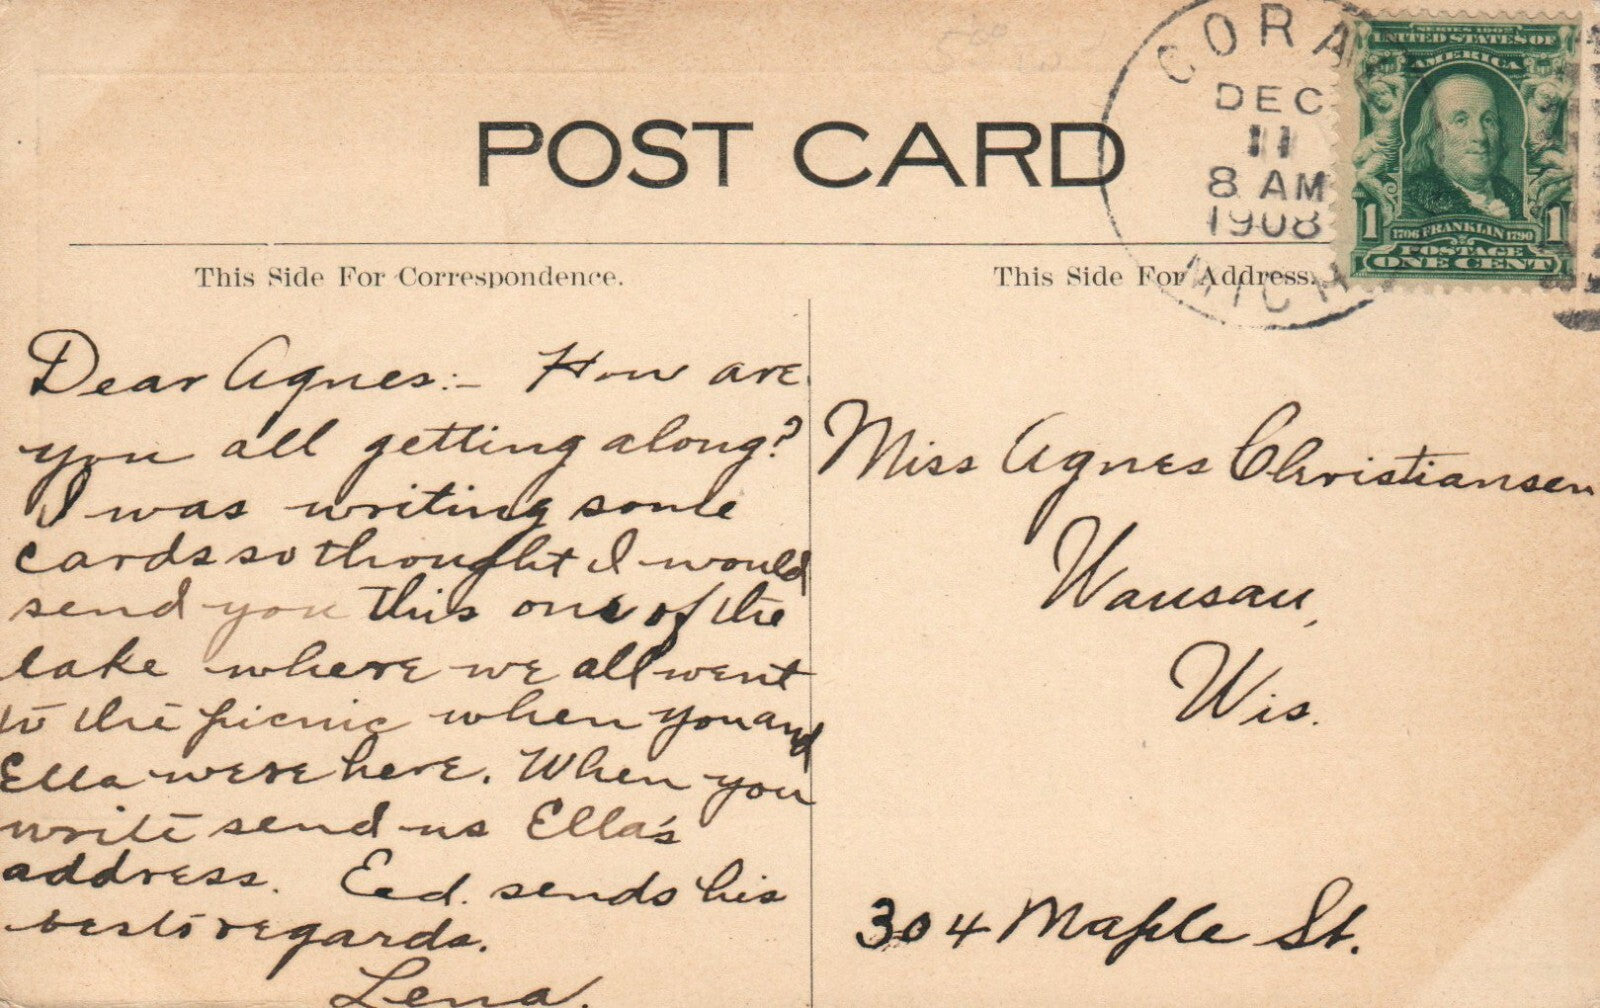 POST CARD
CORA
DEC
11
8 AM
1908
MICH
SERIES 1902
UNITED STATES OF
AMERICA
1 1
1706 FRANKLIN 1790
POSTAGE
ONE CENT
This Side For Correspondence.
This Side For Address.
Dear Agnes:- How are
you all getting along?
I was writing some
cards so thought I would
send you this one of the
lake where we all went
to the picnic when you and
Ella were here. When you
write send us Ella's
address. Eed. sends his
best regards.
Lena.
Miss Agnes Christiansen
Wausau,
Wis.
304 Maple St.